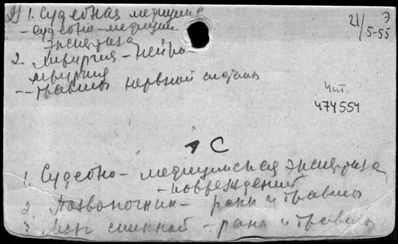 1. Судебная медицина
21/5-55
Э
- судебно-медицин
экспертиза
2. Хирургия - нейро-
хирургия
- травмы нервной системы
Чит.
474554
АС
1. Судебно-медицинская экспертиза
- повреждений
2. Позвоночник - раны и травмы
3. Мозг спинной - раны и травмы